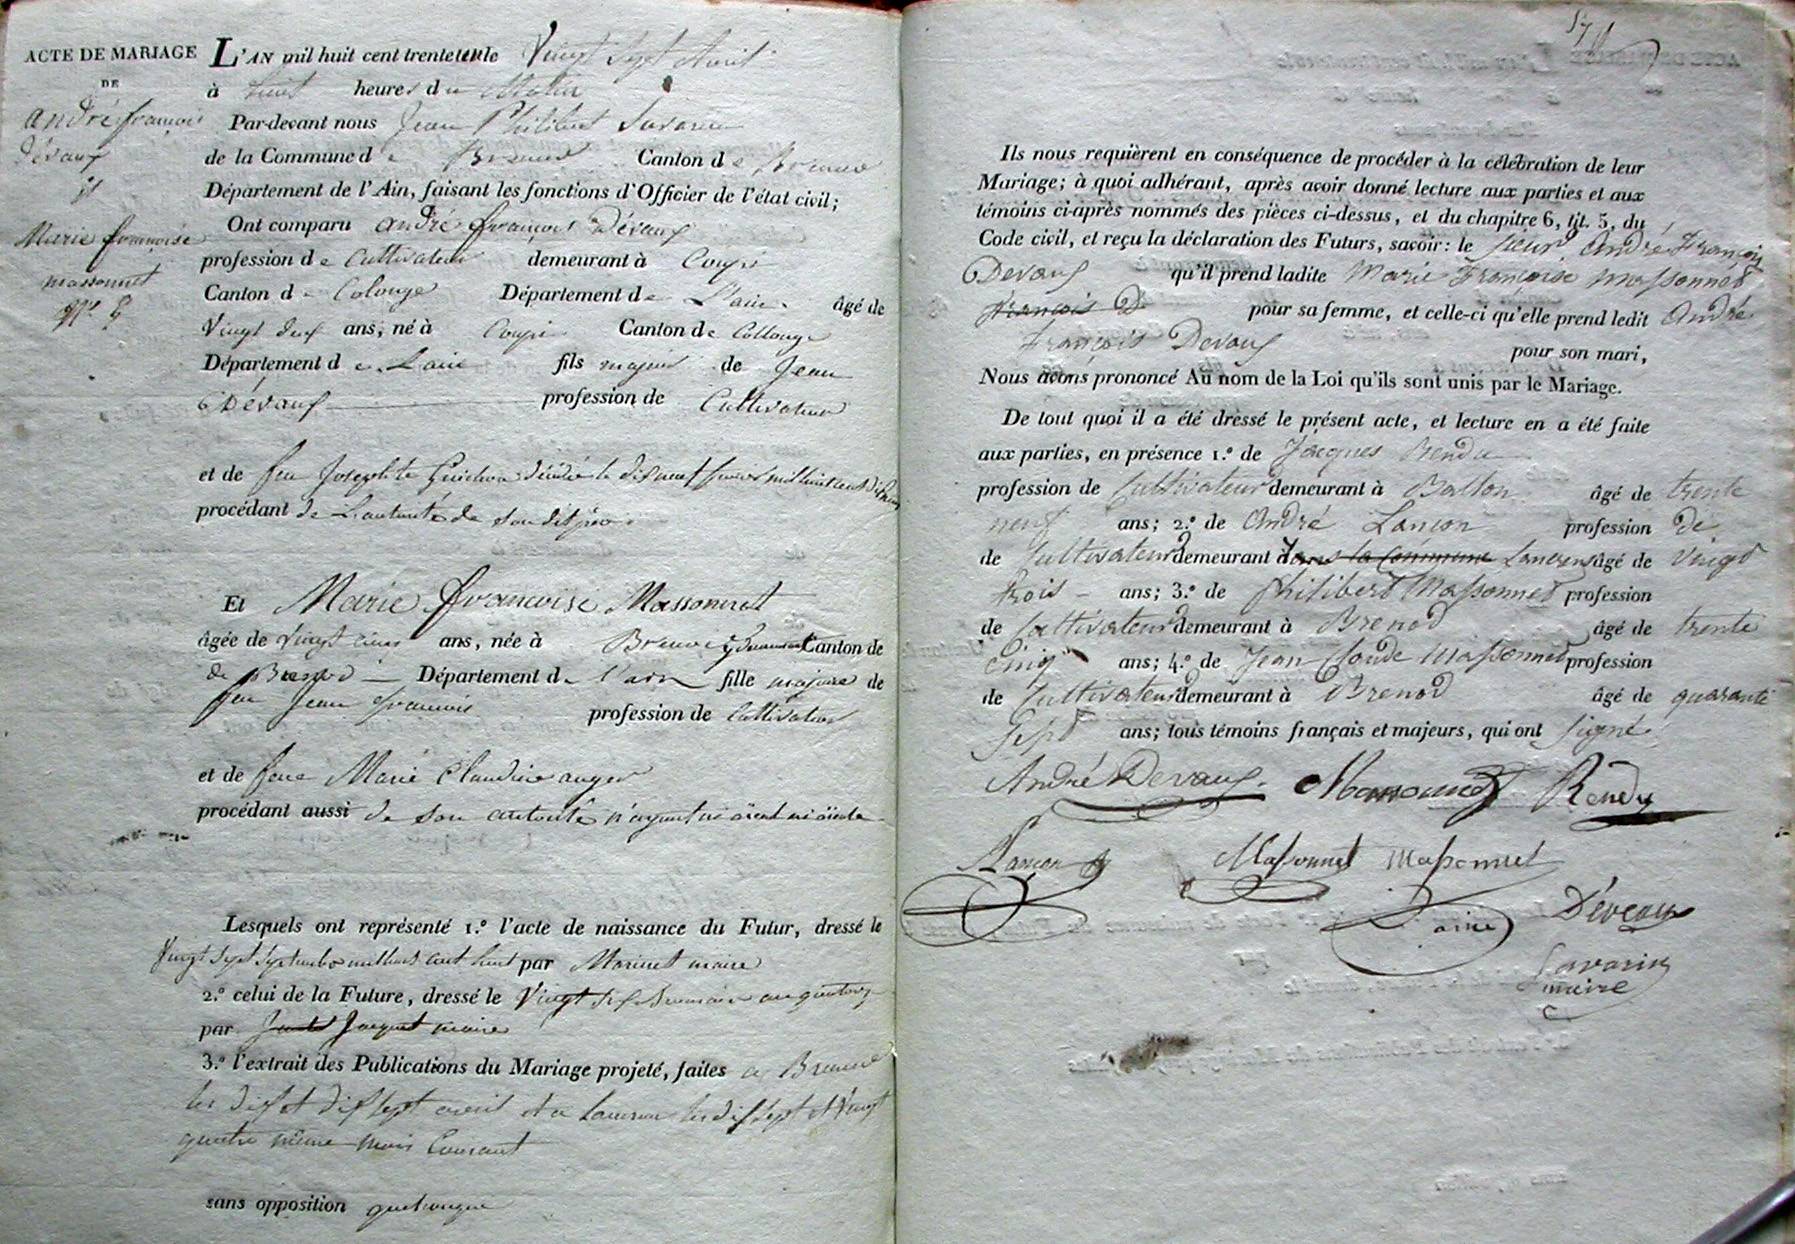 ACTE DE MARIAGE
DE
André françois
Dévaux
et
Marie françoise
massonnet
L'AN mil huit cent trente un le Vingt Sept Avril
à huit heures du Matin
Par-devant nous Jean Philibert Savarin
de la Commune de Brenod Canton de Brenod
Département de l'Ain, faisant les fonctions d'Officier de l'état civil;
Ont comparu andré françois Dévaux
profession de Cultivateur demeurant à Coupi
Canton de Colonge Département de L'ain âgé de
Vingt deux ans, né à Coupi Canton de Collonge
Département de L'ain fils majeur de Jean
Dévaux profession de Cultivateur
et de feu Josephte Guichon décédé le dix neuf janvier mil huit cent dix
procédant de L'autorité de son dit père
Et Marie françoise Massonnet
âgée de vingt cinq ans, née à Brenod Canton de
de Brenod Département de l'ain fille majeure de
feu Jean françois profession de Cultivateur
et de feue Marie Claudine auger
procédant aussi de son autorité n'ayant ni aïeul ni aïeule
Lesquels ont représenté 1.º l'acte de naissance du Futur, dressé le
Vingt Sept Septembre mil huit cent huit par Marinet maire
2.º celui de la Future, dressé le Vingt six Brumaire an quatorze
par Jacquet maire
3.º l'extrait des Publications du Mariage projeté, faites a Brenod
les dix et dix sept avril et a Lancran les dix sept et Vingt
quatre même mois Courant
sans opposition quelconque
Ils nous requièrent en conséquence de procéder à la célébration de leur
Mariage; à quoi adhérant, après avoir donné lecture aux parties et aux
témoins ci-après nommés des pièces ci-dessus, et du chapitre 6, tit. 5, du
Code civil, et reçu la déclaration des Futurs, savoir: le sieur André François
Devaux qu'il prend ladite Marie Françoise Massonnet
François D pour sa femme, et celle-ci qu'elle prend ledit André
François Devaux pour son mari,
Nous avons prononcé Au nom de la Loi qu'ils sont unis par le Mariage.
De tout quoi il a été dressé le présent acte, et lecture en a été faite
aux parties, en présence 1.º de Jacques Rendu
profession de Cultivateur demeurant à Ballon âgé de trente
neuf ans; 2.º de André Lançon profession de
de Cultivateur demeurant à dans la Commune Lancrens âgé de Vingt
trois ans; 3.º de Philibert Massonnet profession
de Cultivateur demeurant à Brenod âgé de trente
Cinq ans; 4.º de Jean Claude Massonnet profession
de Cultivateur demeurant à Brenod âgé de quarante
Sept ans; tous témoins français et majeurs, qui ont signé
André Devaux Massonnet Rendu
Lançon Massonnet Massonnet
ainé Déveaux
Savarin
maire